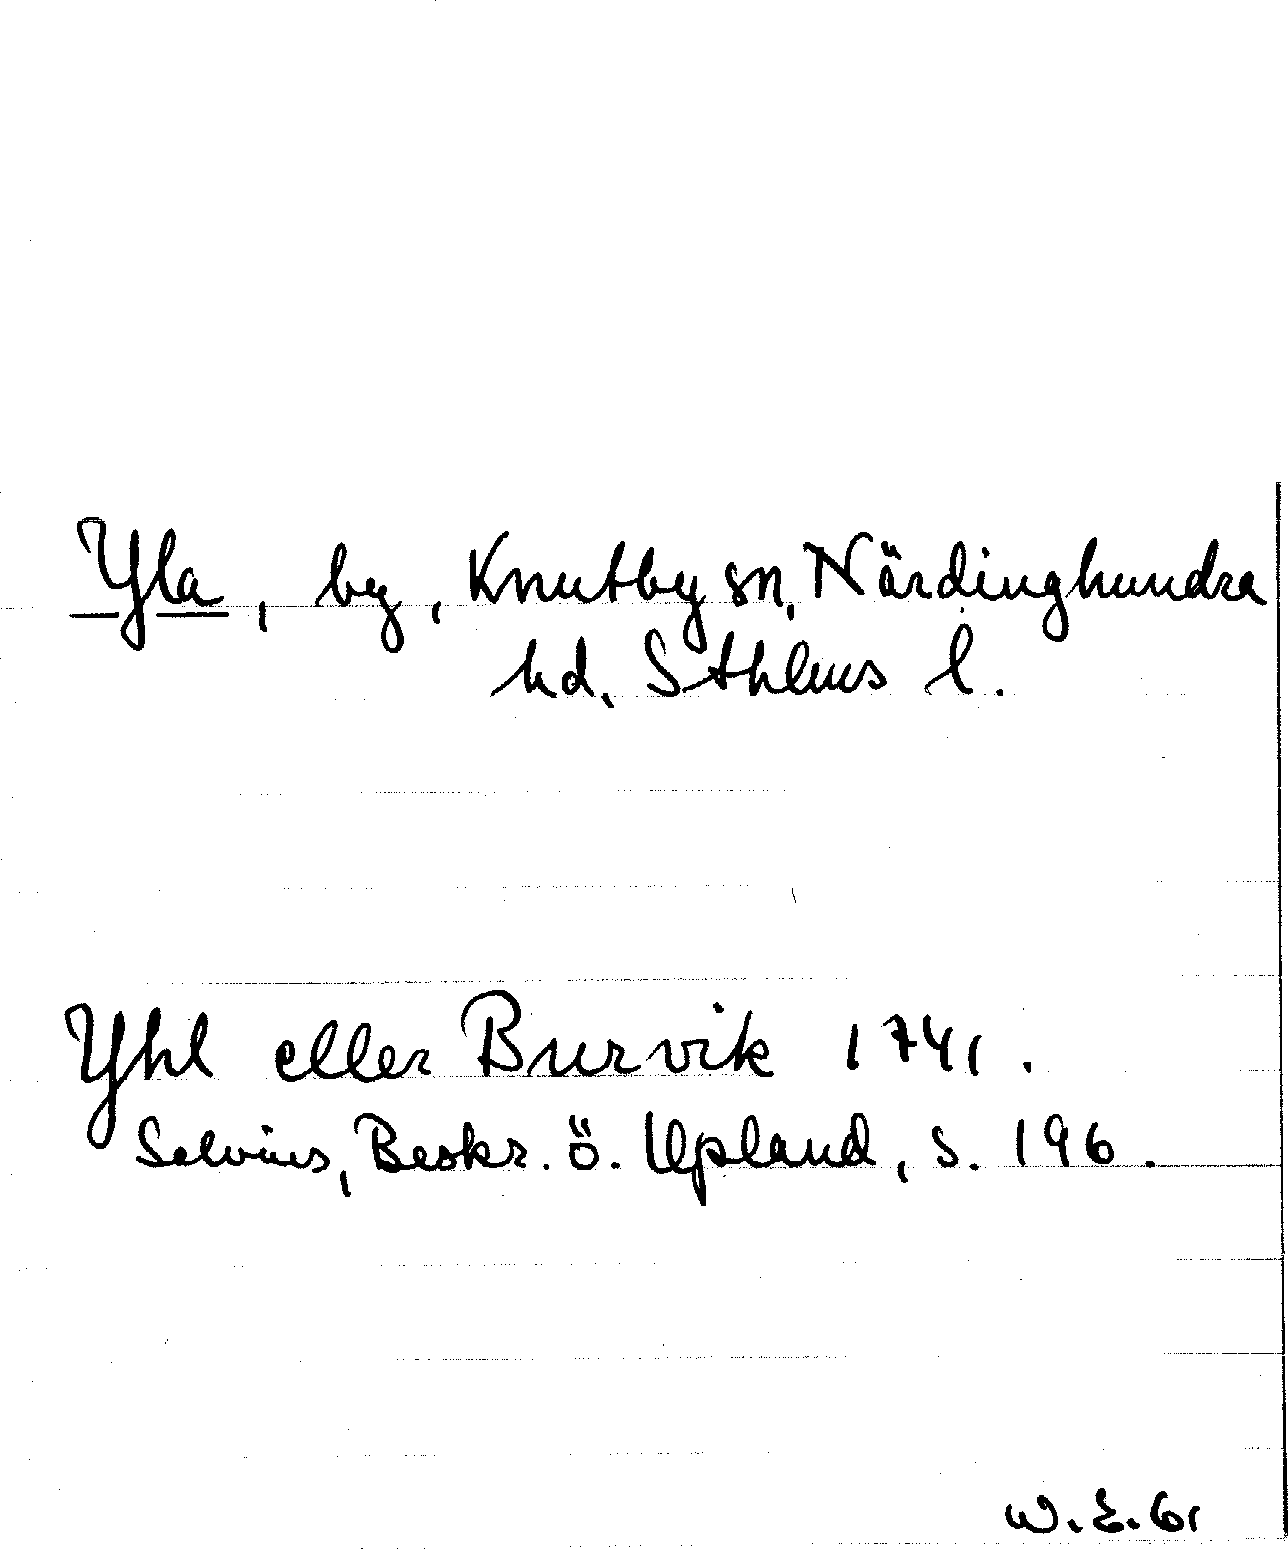 Yla, by, Knutby sn, Närdinghundra
hd, Sthlms l.
Yhl eller Burvik 1741.
Salvius, Beskr. ö. Upland, s. 196.
W.E. 61